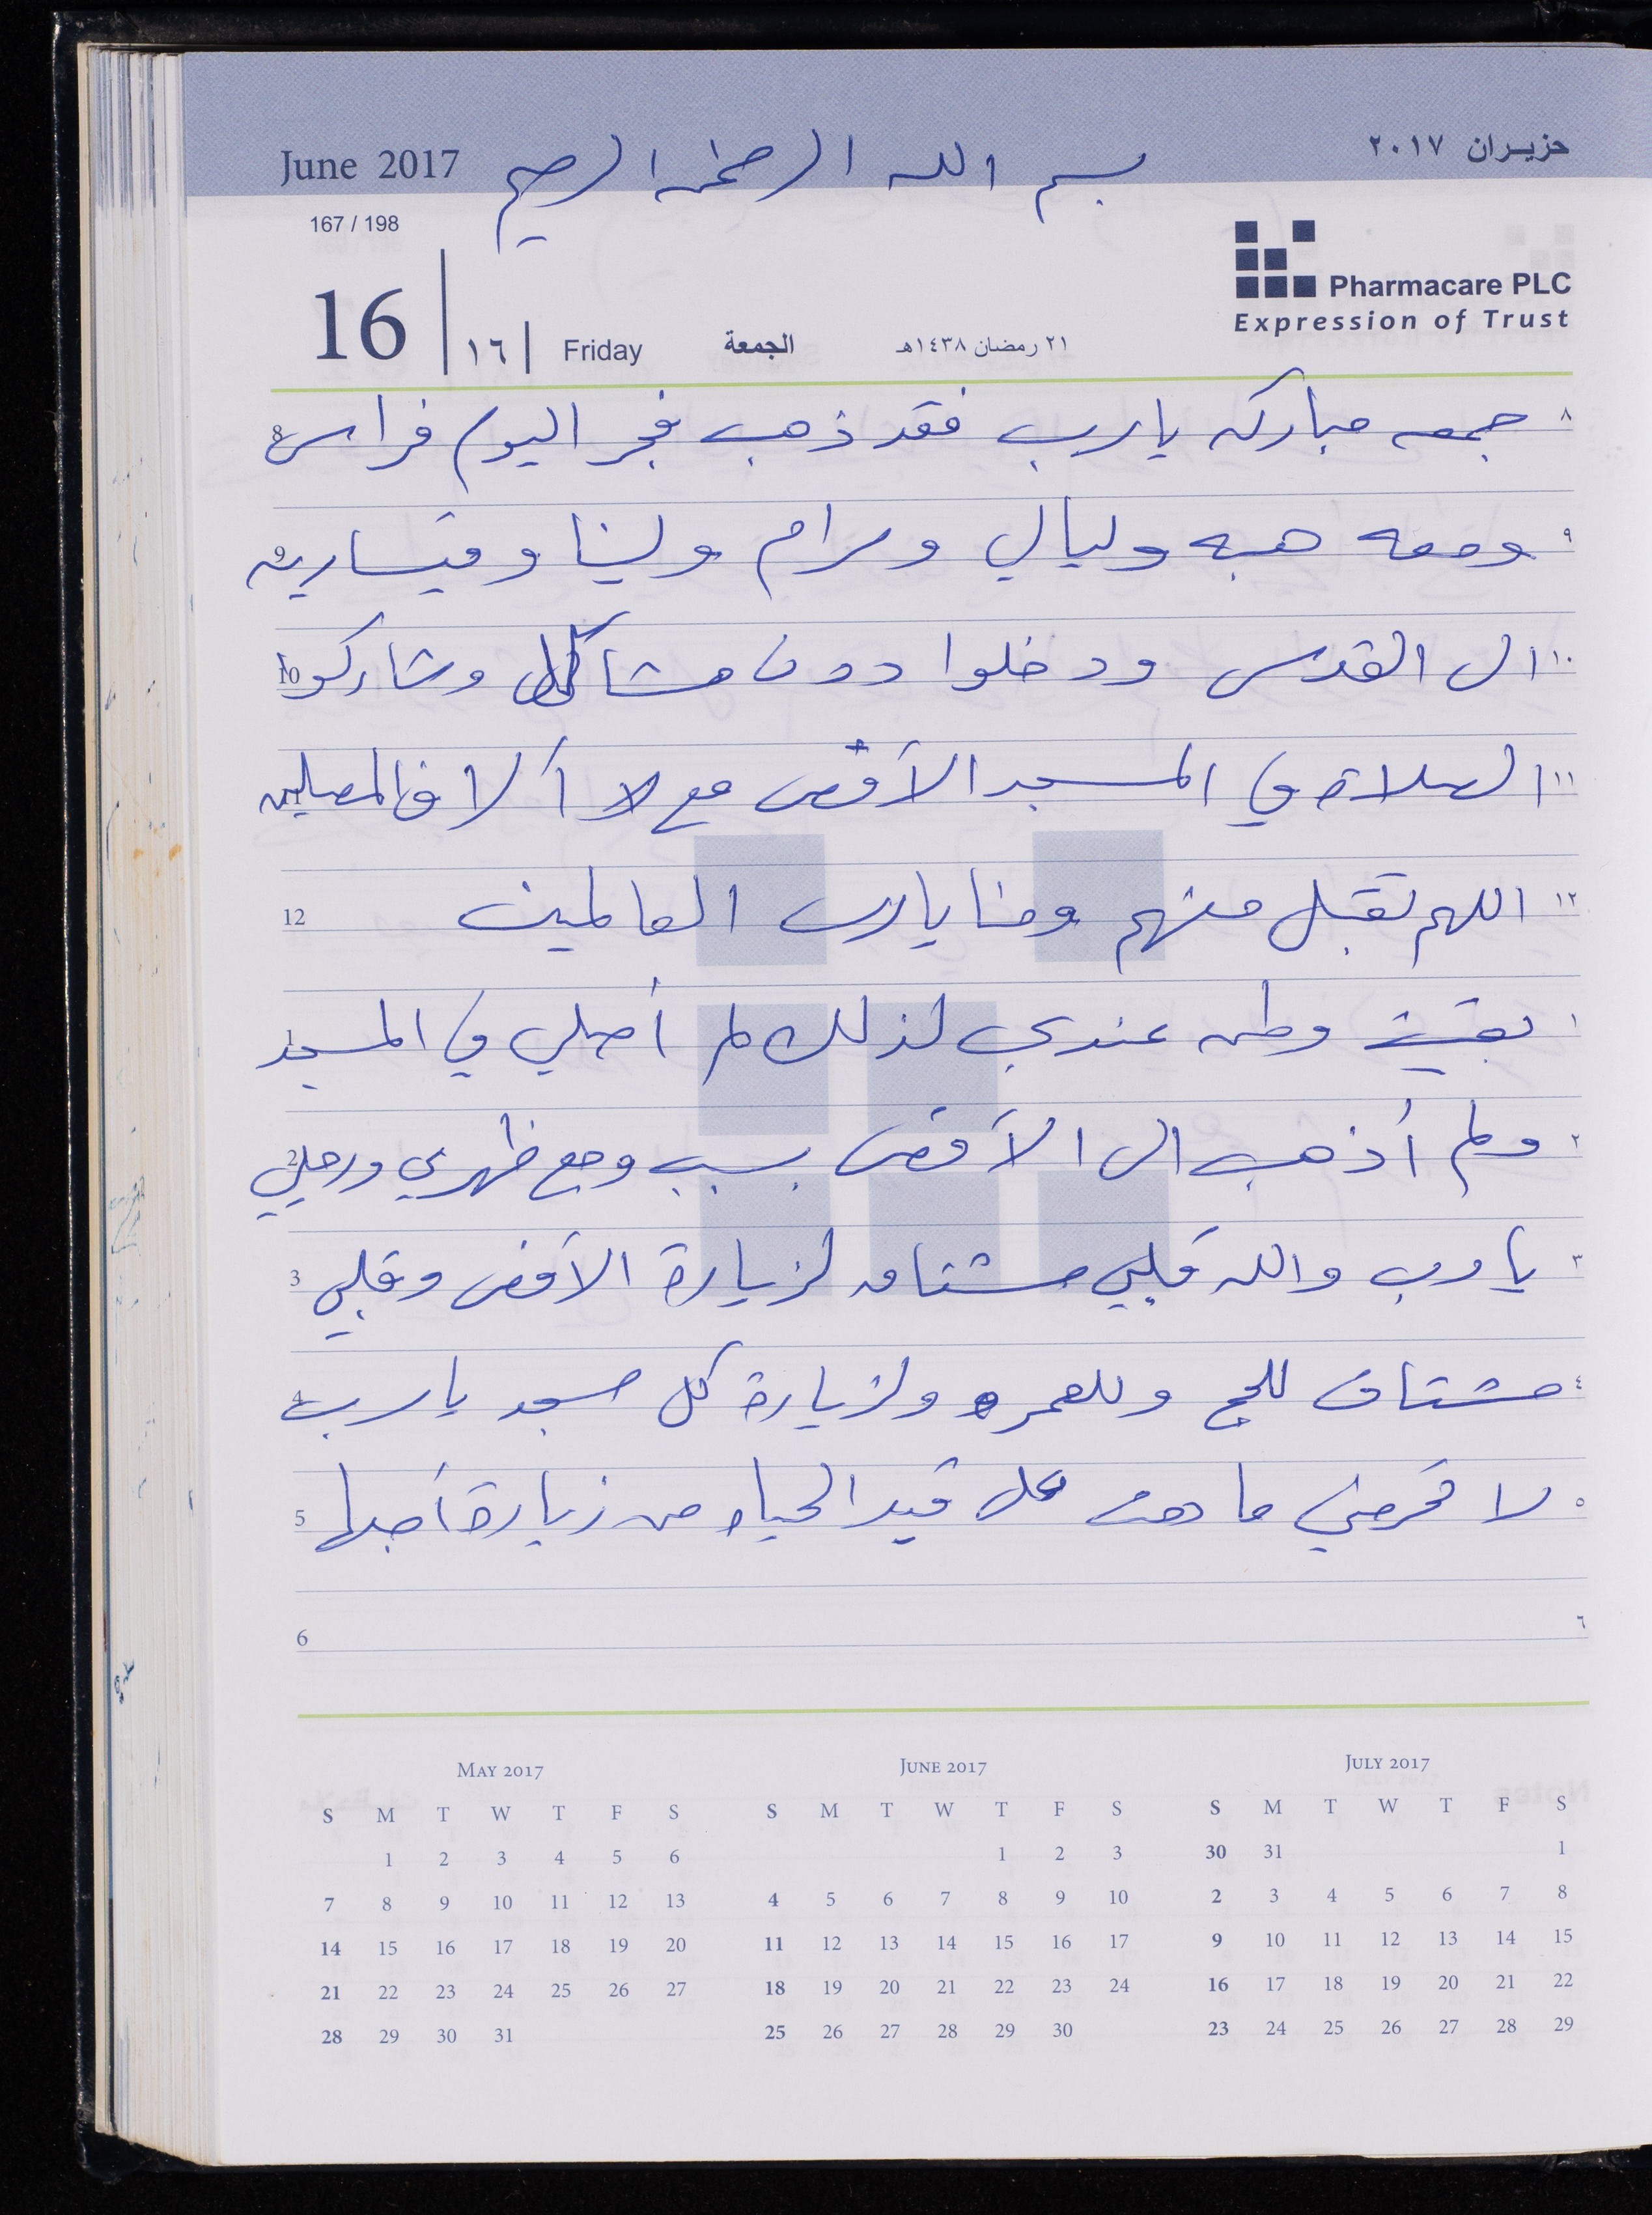 June 2017 بسم الله الرحمن الرحيم حزيران ٢٠١٧
167 / 198
Pharmacare PLC
Expression of Trust
16 ١٦ Friday الجمعة ٢١ رمضان ١٤٣٨هـ
٨ جمعه مباركه يارب فقد ذهب فجر اليوم فراس 8
٩ ومعه هبه وليالي ومرام ولينا وقيساريه 9
١٠ الى القدس ودخلوا دون مشاكل وشاركوا 10
١١ الصلاة في المسجد الأقصى مع آلاف المصلين 11
١٢ اللهم تقبل منهم ومنا يارب العالمين 12
١ بقيت وطن عندي لذلك لم أصلي في المسجد 1
٢ ولم أذهب الى الأقصى بسبب وجع ظهري ورجلي 2
٣ يا رب والله قلبي مشتاق لزيارة الأقصى وقلبي 3
٤ مشتاق للحج وللعمره ولزيارة كل مسجد يارب 4
٥ لا تحرمني ما دمت على قيد الحياه من زيارة أجملها 5
٦ 6
MAY 2017
S M T W T F S
1 2 3 4 5 6
7 8 9 10 11 12 13
14 15 16 17 18 19 20
21 22 23 24 25 26 27
28 29 30 31
JUNE 2017
S M T W T F S
1 2 3
4 5 6 7 8 9 10
11 12 13 14 15 16 17
18 19 20 21 22 23 24
25 26 27 28 29 30
JULY 2017
S M T W T F S
30 31 1
2 3 4 5 6 7 8
9 10 11 12 13 14 15
16 17 18 19 20 21 22
23 24 25 26 27 28 29